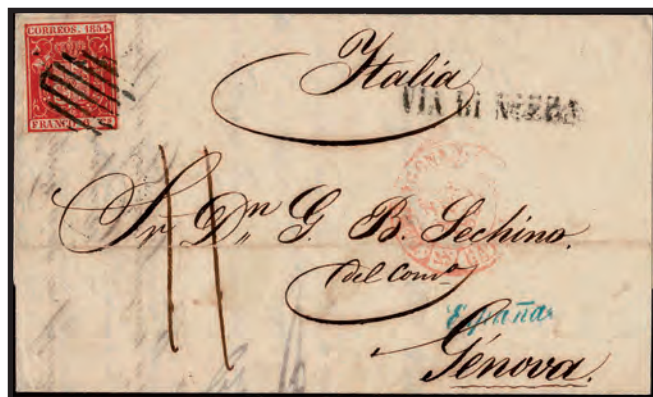 CORREOS. 1854.
FRANCO
Italia
VIA DI
Sr. Dn. G. B. Sechino.
del Como
España
Génova.